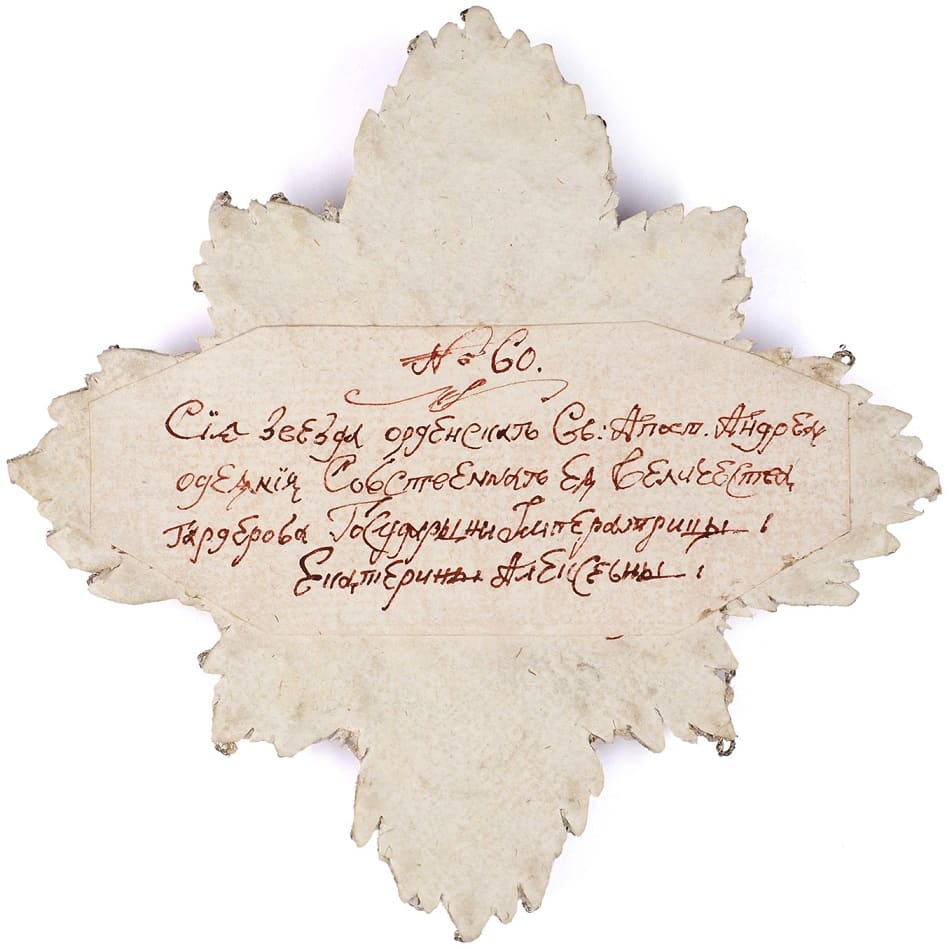 № 60.
Сїя звезда орденскать Св: Апост. Андрея
одеянїя Собственнать Ея Величества
гардероба Государыни Императрицы :
Екатерины Алексевны :